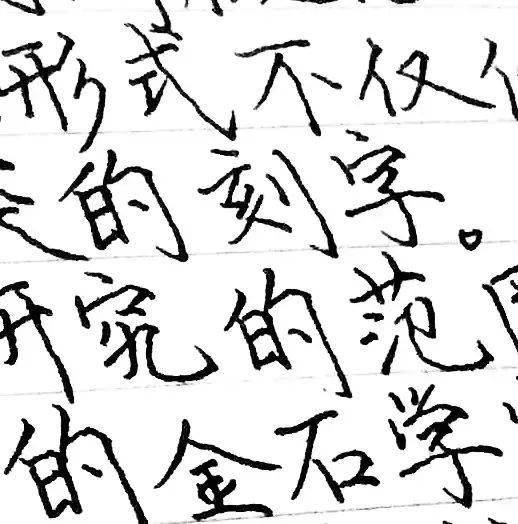 形式不仅
的刻字。
研究的范
的金石学